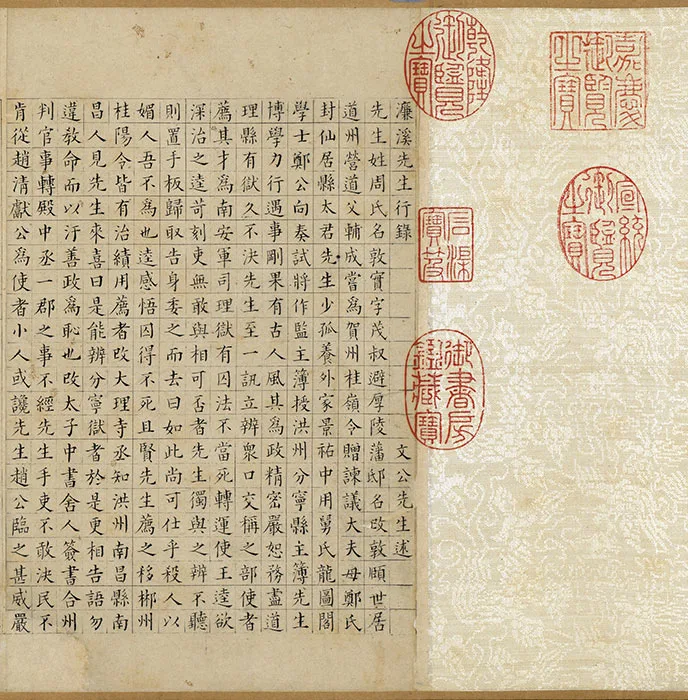 嘉慶御覽之寶
宣統御覽之寶
乾隆御覽之寶
石渠寶笈
御書房鑑藏寶
濂溪先生行錄 文公先生述
先生姓周氏名敦實字茂叔避厚陵藩邸名改敦頤世居
道州營道父輔成嘗爲賀州桂嶺令贈諫議大夫母鄭氏
封仙居縣太君先生少孤養外家景祐中用舅氏龍圖閣
學士鄭公向奏試將作監主簿授洪州分寧縣主簿先生
博學力行遇事剛果有古人風其爲政精密嚴恕務盡道
理縣有獄久不決先生至一訊立辨衆口交稱之部使者
薦其才爲南安軍司理獄有囚法不當死轉運使王逵欲
深治之逵苛刻吏無敢與相可否者先生獨與之辨不聽
則置手板歸取告身委之而去曰如此尚可仕乎殺人以
媚人吾不爲也逵感悟囚得不死且賢先生薦之移郴州
桂陽令皆有治績用薦者改大理寺丞知洪州南昌縣南
昌人見先生來喜曰是能辨分寧獄者於是更相告語勿
違教命而以汙善政爲恥也改太子中書舍人簽書合州
判官事轉殿中丞一郡之事不經先生手吏不敢決民不
肯從趙清獻公爲使者小人或讒先生趙公臨之甚威嚴